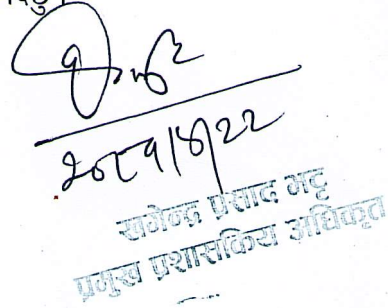 २०८१|४|२२
खगेन्द्र प्रसाद भट्ट
प्रमुख प्रशासकिय अधिकृत